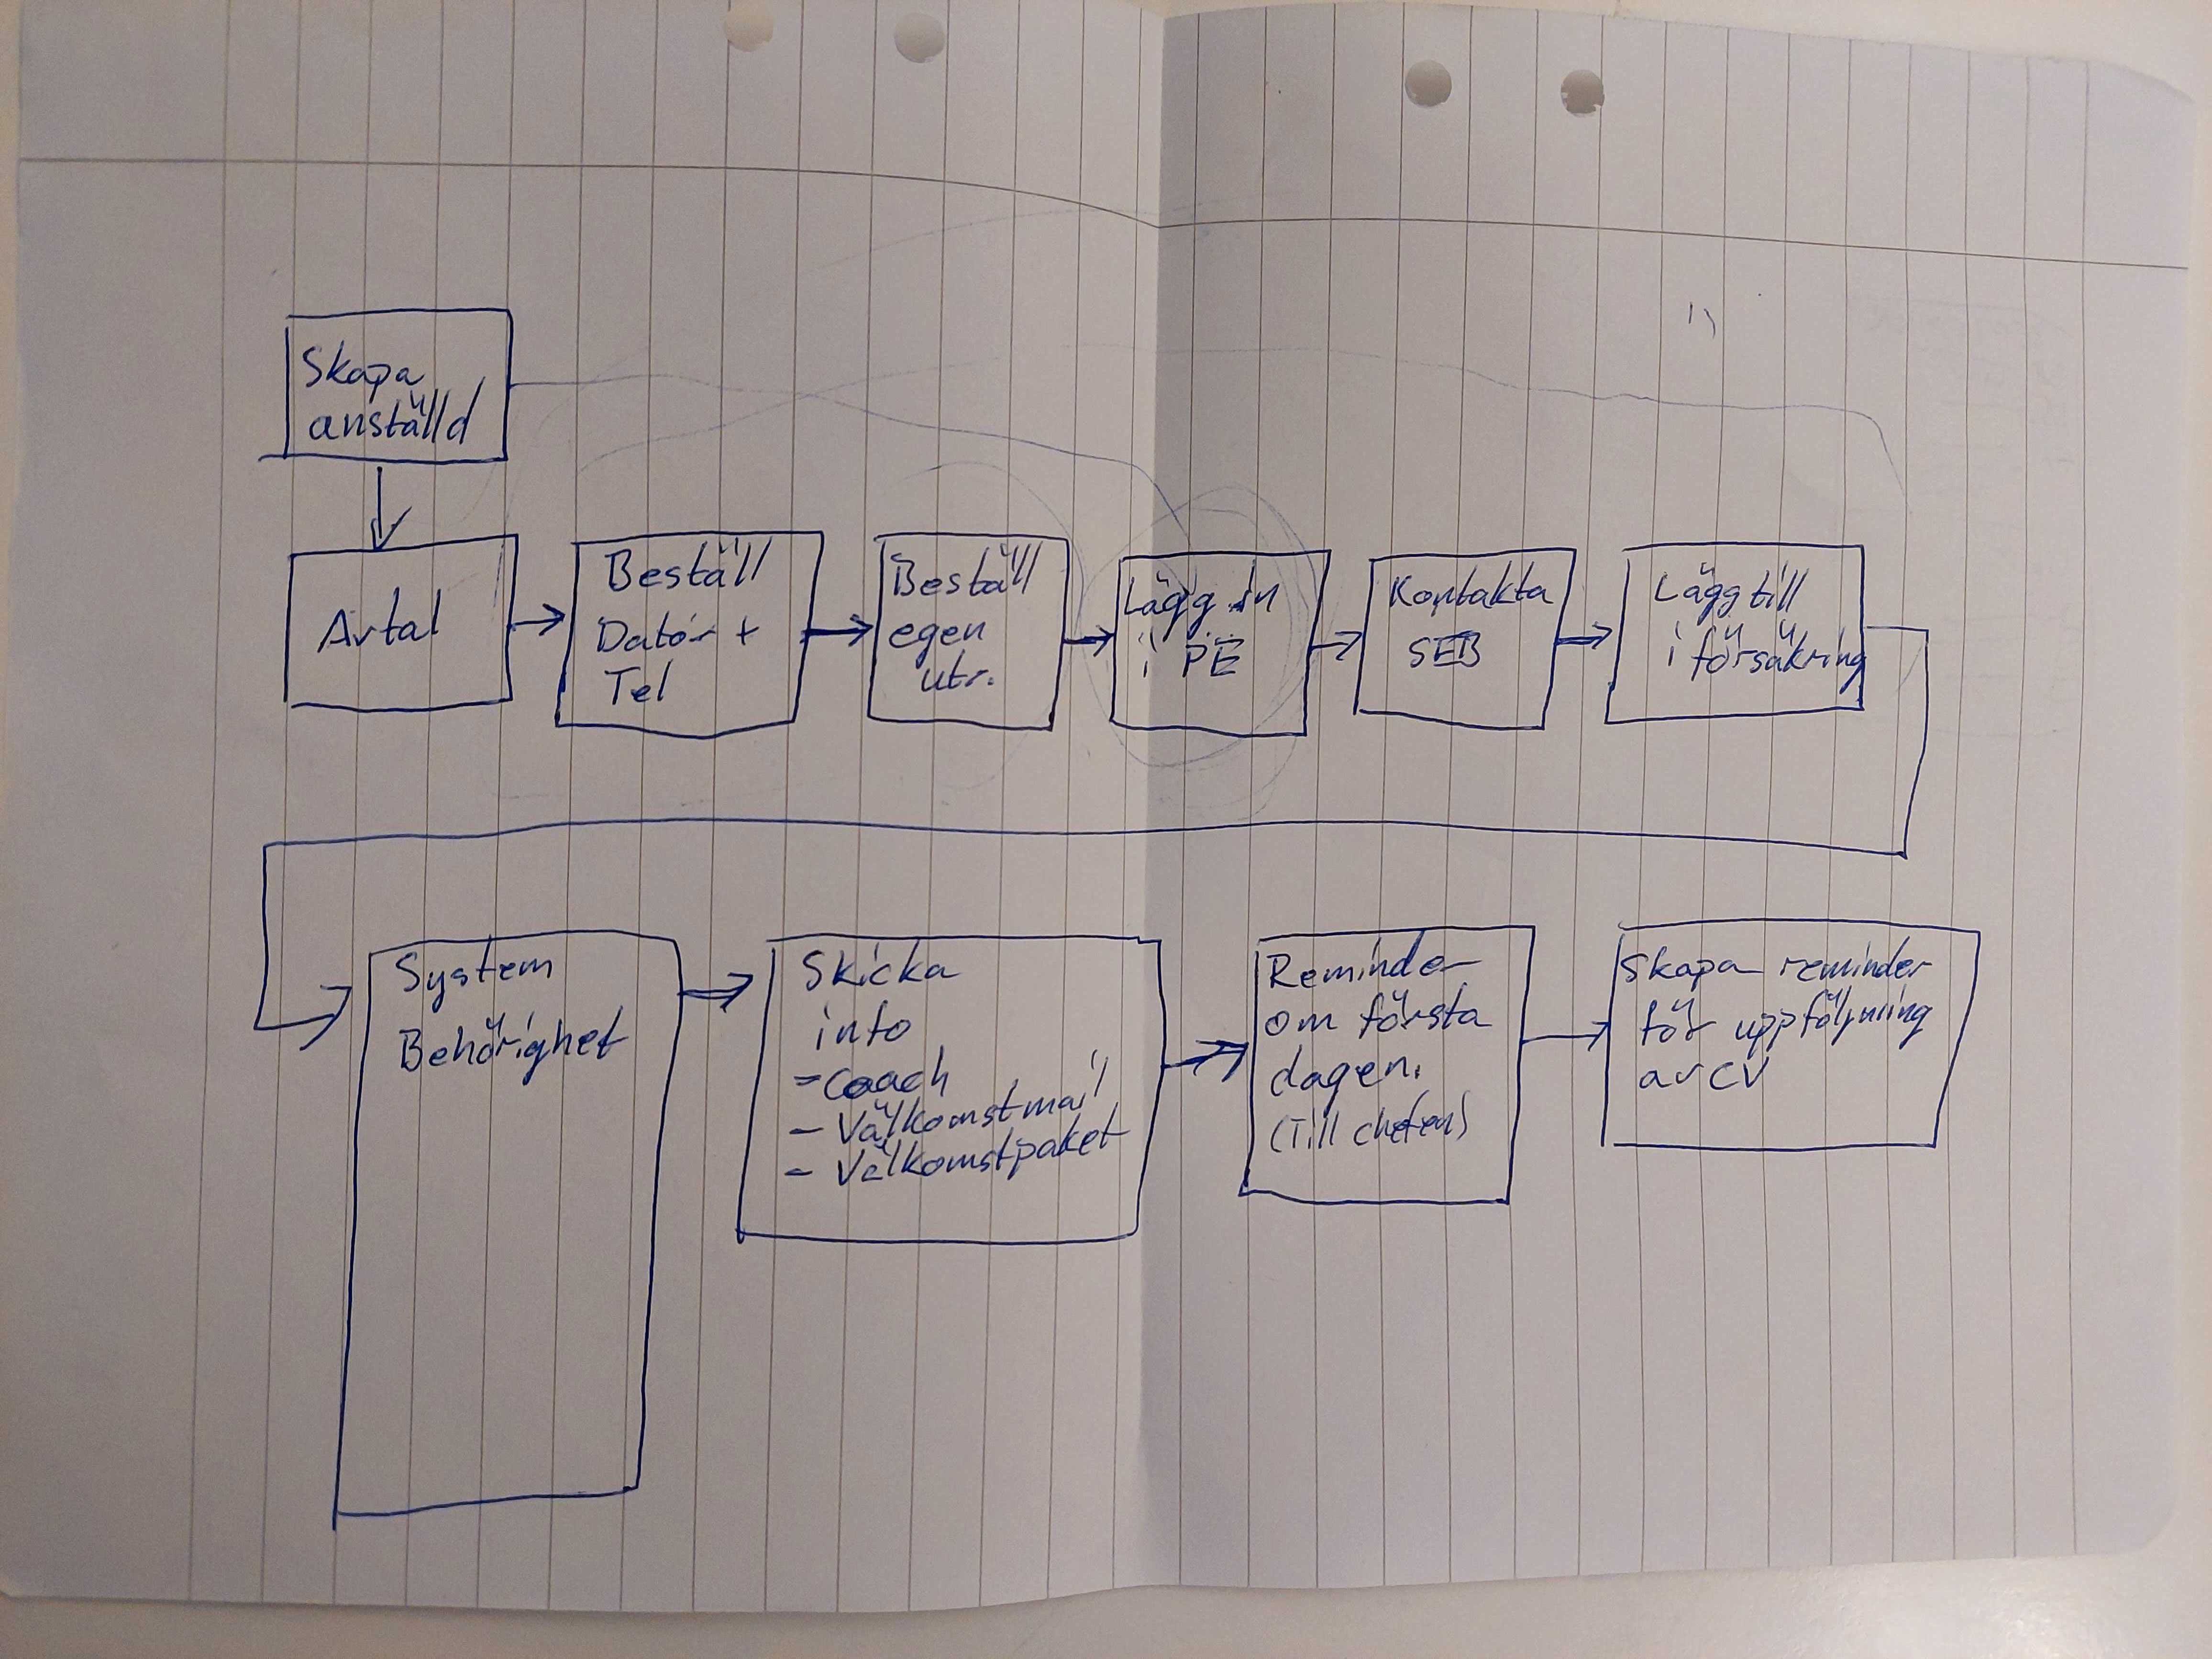 Skapa
anställd
Avtal
Beställ
Dator +
Tel
Beställ
egen
utr.
Lägg in
i PE
Kontakta
SEB
Lägg till
i försäkring
System
Behörighet
Skicka
info
- Coach
- Välkomstmail
- Välkomstpaket
Reminder
om första
dagen.
(Till chefen)
Skapa reminder
för uppföljning
av CV